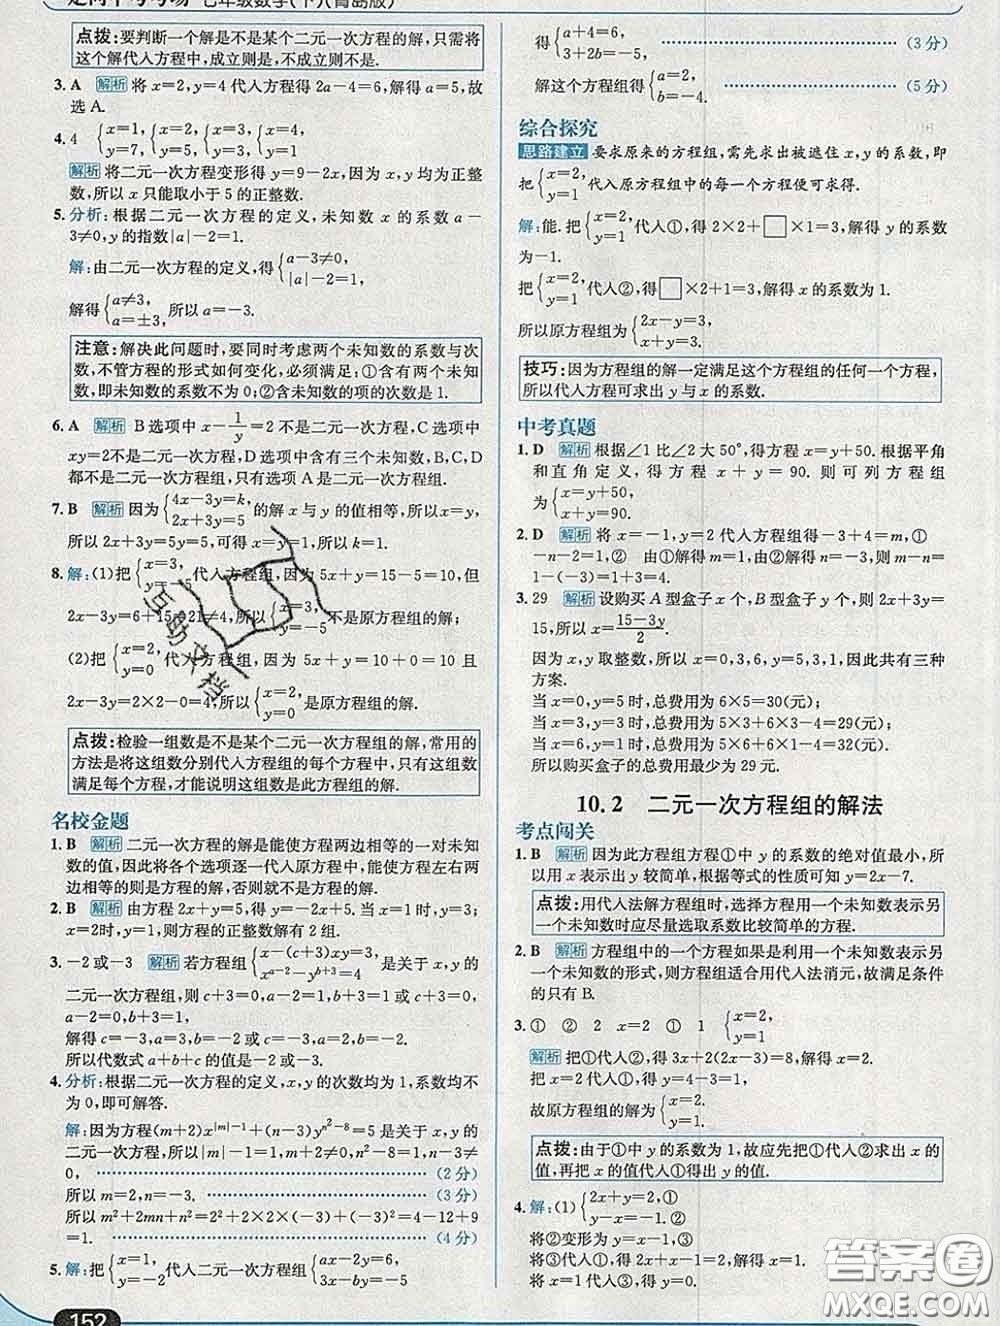 点拨:要判断一个解是不是某个二元一次方程的解,只需将
这个解代人方程中,成立则是,不成立则不是.
3. A 解析 将 x=2,y=4 代人方程得 2a-4=6,解得 a=5,故
选 A.
4. 4 {x=1, y=7, {x=2, y=5, {x=3, y=3, {x=4, y=1
解析 将二元一次方程变形得 y=9-2x,因为 x,y 均为正整
数,所以 x 只能取小于 5 的正整数.
5. 分析:根据二元一次方程的定义,未知数 x 的系数 a-
3≠0,y 的指数|a|-2=1.
解:由二元一次方程的定义,得{a-3≠0, |a|-2=1,
解得{a≠3, a=±3, 所以 a=-3.
注意:解决此问题时,要同时考虑两个未知数的系数与次
数,不管方程的形式如何变化,必须满足:①含有两个未知
数,即未知数的系数不为 0;②含未知数的项的次数是 1.
6. A 解析 B 选项中 x-1/y=2 不是二元一次方程,C 选项中
xy=2不是二元一次方程,D 选项中含有三个未知数,B,C,D
都不是二元一次方程组,只有选项 A 是二元一次方程组.
7. B 解析 因为{4x-3y=k, 2x+3y=5 的解 x 与 y 的值相等,所以x=y,
所以 2x+3y=5y=5,可得 x=y=1,所以 k=1.
8. 解:(1)把{x=3, y=-5 代人方程组,因为 5x+y=15-5=10,但
2x-3y=6+15=21≠4,所以{x=3, y=-5 不是原方程组的解.
(2)把{x=2, y=0 代人方程组,因为 5x+y=10+0=10 且
2x-3y=2×2-0=4,所以{x=2, y=0 是原方程组的解.
点拨:检验一组数是不是某个二元一次方程组的解,常用的
方法是将这组数分别代人方程组的每个方程,只有这组数
满足每个方程,才能说明这组数是此方程组的解.
名校金题
1. B 解析 二元一次方程的解是能使方程两边相等的一对未知
数的值,因此将各个选项逐一代人原方程中,能使方程左右两
边相等的则是方程的解,否则就不是方程的解.
2. B 解析 由方程 2x+y=5,得 y=-2x+5.当 x=1 时,y=3;
x=2 时,y=1,则方程的正整数解有 2 组.
3. -2或-3 解析 若方程组{x-(c+3)xy=3, x^{a-2}-y^{b+3}=4 是关于 x,y 的
二元一次方程组,则 c+3=0,a-2=1,b+3=1 或 c+3=0,
a-2=0,b+3=1,
解得 c=-3,a=3,b=-2 或 c=-3,a=2,b=-2.
所以代数式 a+b+c 的值是-2 或-3.
4. 分析:根据二元一次方程的定义,x,y 的次数均为 1,系数均不
为 0,即可解答.
解:因为方程(m+2)x^{|m|-1}+(n-3)y^{n²-8}=5 是关于 x,y 的
二元一次方程,所以|m|-1=1,m+2≠0,n²-8=1,n-3≠
0, (2 分)
所以 m=2,n=-3. (3 分)
所以 m²+2mn+n²=2²+2×2×(-3)+(-3)²=4-12+9
=1. (4 分)
5. 解:把{x=1, y=-2 代人二元一次方程组{ax-2y=6, 3x-by=-5
152
得{a+4=6, 3+2b=-5. (3 分)
解这个方程组得{a=2, b=-4. (5 分)
综合探究
思路建立 要求原来的方程组,需先求出被遮住 x,y 的系数,即
把{x=2, y=1 代入原方程组中的每一个方程便可求得.
解:能.把{x=2, y=1 代人①,得 2×2+□×1=3,解得 y 的系数
为-1.
把{x=2, y=1 代人②,得□×2+1=3,解得 x 的系数为 1.
所以原方程组为{2x-y=3, x+y=3.
技巧:因为方程组的解一定满足这个方程组的任何一个方程,
所以代人方程可求出 y 与 x 的系数.
中考真题
1. D 解析 根据∠1 比∠2 大 50°,得方程 x=y+50.根据平角
和直角定义,得方程 x+y=90.则可列方程组
为{x=y+50, x+y=90.
2. D 解析 将 x=-1,y=2 代人方程组得-3+4=m,①
-n-2=1② 由①解得 m=1,由②解得 n=-3,则 m-n=
1-(-3)=4.
3. 29 解析 设购买 A 型盒子 x 个,B 型盒子 y 个,则 2x+3y=
15,所以 x=(15-3y)/2.
因为 x,y 取整数,所以 x=0,3,6,y=5,3,1,因此共有三种
方案.
当 x=0,y=5 时,总费用为 6×5=30(元);
当 x=3,y=3 时,总费用为 5×3+6×3-4=29(元);
当 x=6,y=1 时,总费用为 5×6+6×1-4=32(元).
所以购买盒子的总费用最少为 29 元.
10.2 二元一次方程组的解法
考点闯关
1. B 解析 因为此方程组方程①中 y 的系数的绝对值最小,所
以用 x 表示出 y 较简单,根据等式的性质可知 y=2x-7.
点拨:用代人法解方程组时,选择方程用一个未知数表示另
一个未知数时应尽量选取系数比较简单的方程.
2. B 解析 方程组中的一个方程如果是利用一个未知数表示另
一个未知数的形式,则方程组适合用代人法消元,故满足条件
的只有 B.
3. ① ② 2 x=2 ① 1 {x=2, y=1
解析 把①代人②得 3x+2(4-x)=8,解得 x=2.
把 x=2 代人①,得 y=4-3=1.
故原方程组的解为{x=2, y=1.
点拨:由于①中 y 的系数为 1,故应先把①代人②求出 x 的
值,再把 x 的值代人①得出 y 的值.
4. 解:(1){2x+y=2,① x-y=1.②
将②变形为 y=x-1,③
将③代人①,得 2x+x-1=2,解得 x=1.
将 x=1 代人③,得 y=0.
互助文档
答案圈
MXQE.COM